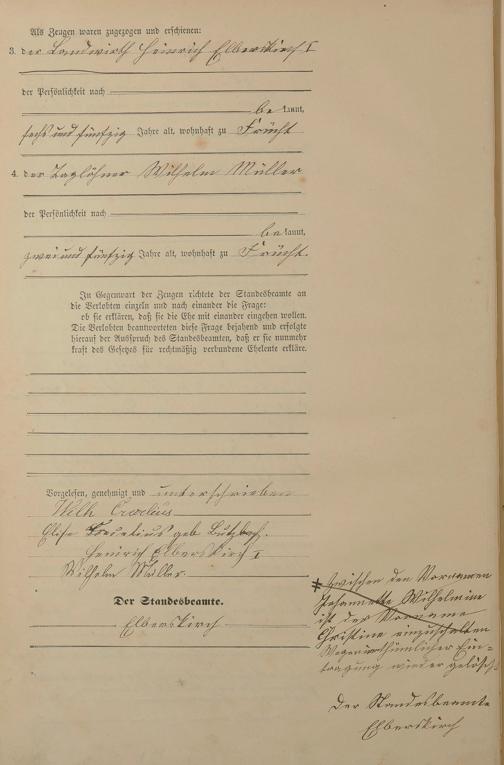 Als Zeugen waren zugezogen und erschienen:
3. der Landwirth Heinrich Elberskirch I
der Persönlichkeit nach
be kannt,
sechs und fünfzig Jahre alt, wohnhaft zu Frücht
4. der Taglöhner Wilhelm Müller
der Persönlichkeit nach
be kannt,
zwei und fünfzig Jahre alt, wohnhaft zu Frücht.
In Gegenwart der Zeugen richtete der Standesbeamte an
die Verlobten einzeln und nach einander die Frage:
ob sie erklären, daß sie die Ehe mit einander eingehen wollen.
Die Verlobten beantworteten diese Frage bejahend und erfolgte
hierauf der Ausspruch des Standesbeamten, daß er sie nunmehr
kraft des Gesetzes für rechtmäßig verbundene Eheleute erkläre.
Vorgelesen, genehmigt und unterschrieben
Wilh
Elise geb
Heinrich Elberskirch I
Wilhelm Müller
Der Standesbeamte.
Elberskirch
zwischen den Vornamen
Johannette Wilhelmine
ist der Vorname
Christine einzuschalten
Wegen irrthümlicher Ein-
tragung wieder gelöscht
Der Standesbeamte
Elberskirch